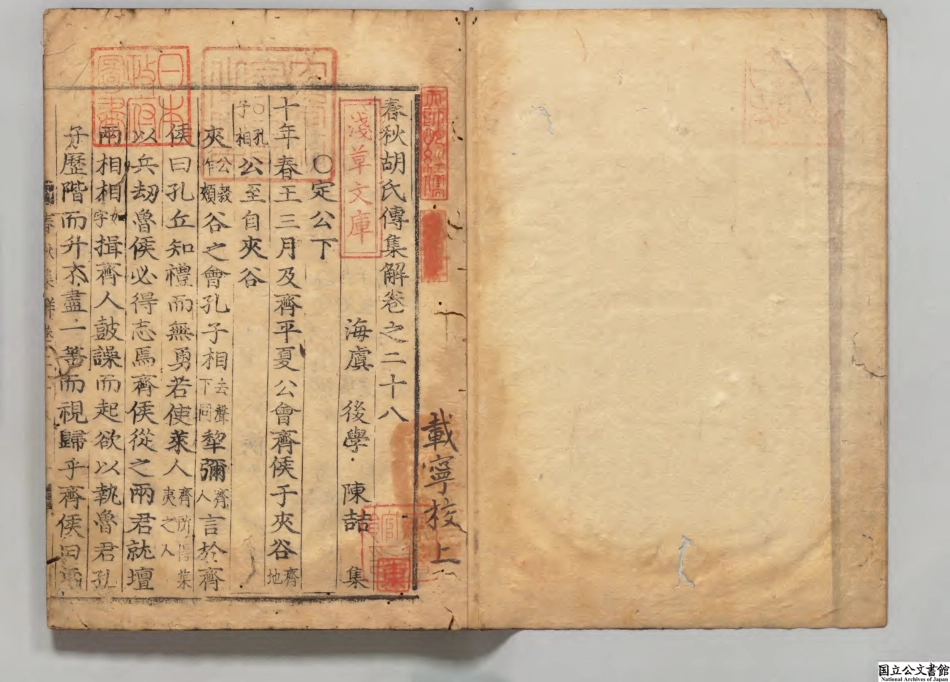 春秋胡氏傳集解卷之二十八
海虞 後學 陳喆 集
○定公下
十年春王三月及齊平夏公會齊侯于夾谷齊地
○孔子相公至自夾谷
夾公羖作頰谷之會孔子相去聲下同犂彌齊人言於齊
侯曰孔丘知禮而無勇若使萊人齊所得萊夷之人
以兵劫魯侯必得志焉齊侯從之兩君就壇
兩相相字如揖齊人鼓譟而起欲以執魯君孔
子歷階而升不盡一等而視歸乎齊侯曰兩
載寧校上
淺草文庫
日本政府圖書
国立公文書館
National Archives of Japan